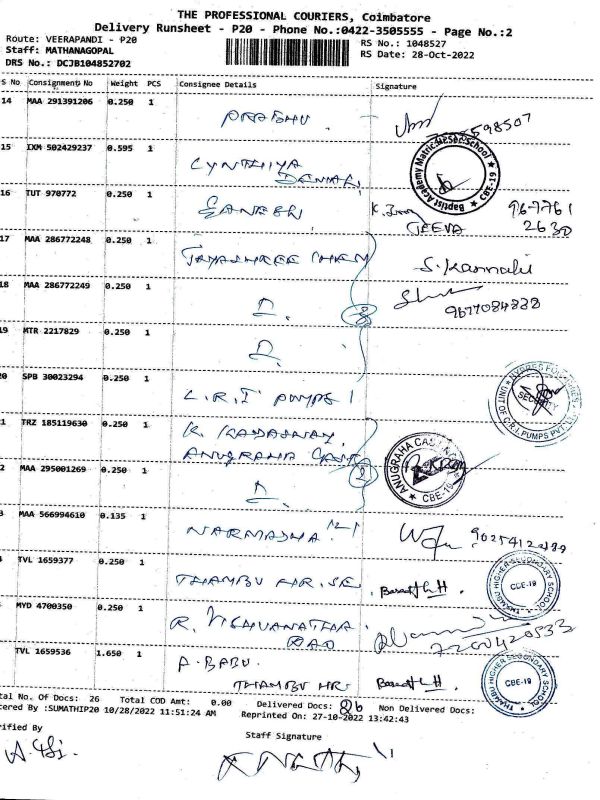 THE PROFESSIONAL COURIERS, Coimbatore
Delivery Runsheet - P20 - Phone No.:0422-3505555 - Page No.:2
Route: VEERAPANDI - P20
Staff: MATHANAGOPAL
DRS No.: DCJB104852702
RS No.: 1048527
RS Date: 28-Oct-2022
S No Consignment No Weight PCS Consignee Details Signature
14 MAA 291391206 0.250 1 PRABHU 598507
15 IXM 502429237 0.595 1 CYNTHIYA
Baptist Academy Matric.Hr.Sec.School CBE-19
16 TUT 970772 0.250 1 GANESH
JEEVA
96-7761
2630
17 MAA 286772248 0.250 1 JAYASHREE CHEM S. Kamali
18 MAA 286772249 0.250 1 D. 3
9677084838
19 MTR 2217829 0.250 1 D.
20 SPB 30023294 0.250 1 C.R.I PUMPS
SECURITY
UNIT OF C.R.I. PUMPS PVT. LTD
1 TRZ 185119630 0.250 1 K.
ANUGRAHA CAST
ANUGRAHA CASTINGS CBE-19
2 MAA 295001269 0.250 1 D. 2
3 MAA 566994610 0.135 1 NARMADHA
4 TVL 1659377 0.250 1 THAMBU HR.SE. Barath H.
THAMBU HIGHER SECONDARY SCHOOL CBE-19
5 MYD 4700350 0.250 1 R. VISHVANATHA
RAO
7200420533
TVL 1659536 1.650 1 A. BABU.
THAMBU HR. Barath H.
THAMBU HIGHER SECONDARY SCHOOL CBE-19
tal No. Of Docs: 26 Total COD Amt: 0.00 Delivered Docs: 26 Non Delivered Docs:
ered By :SUMATHIP20 10/28/2022 11:51:24 AM Reprinted On: 27-10-2022 13:42:43
rified By
Staff Signature